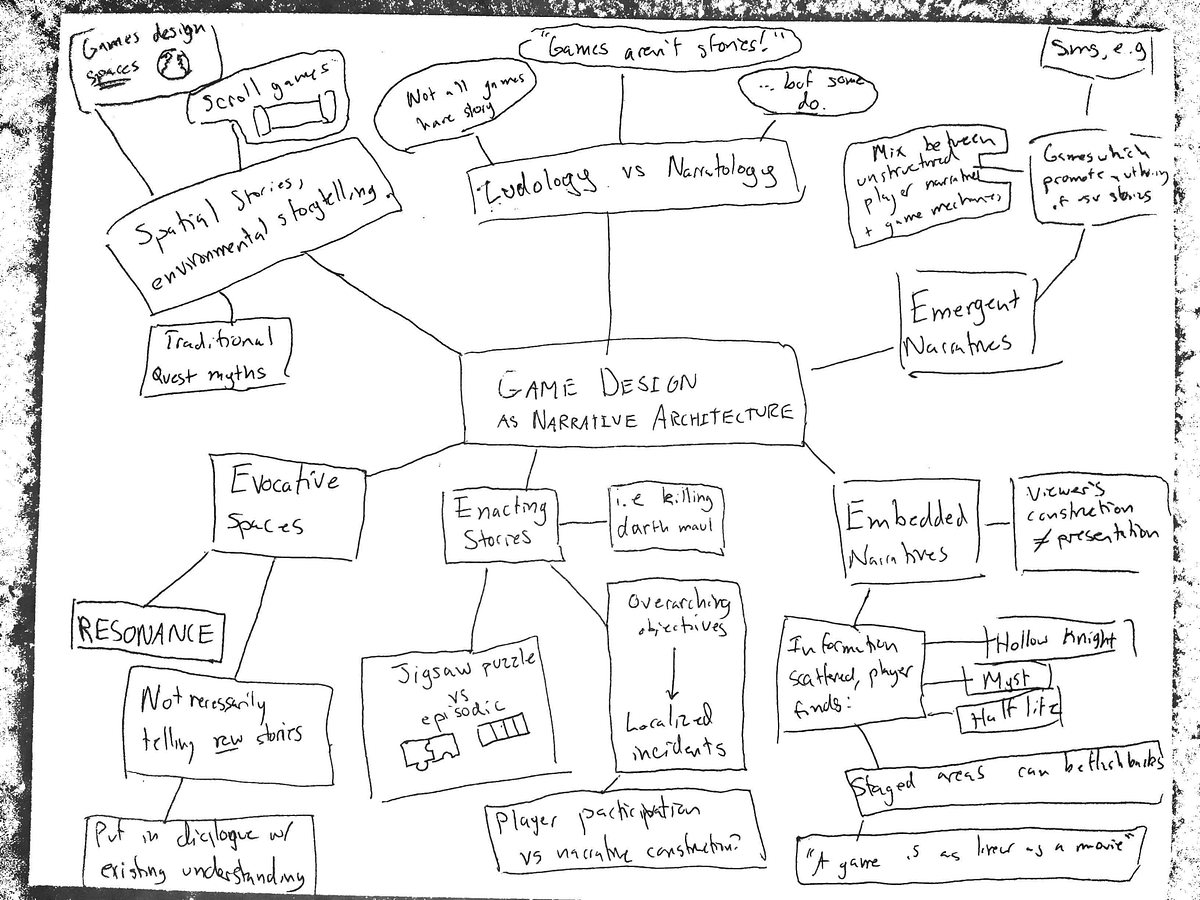 Games design
spaces
Scroll games
"Games aren't stories!"
Not all games
have story
... but some
do.
Sims, e.g
Mix between
unstructured
player narrative
+ game mechanics
Games which
promote authoring
of new stories
Spatial Stories,
environmental storytelling.
Ludology vs Narratology
Traditional
Quest myths
Emergent
Narratives
GAME DESIGN
AS NARRATIVE ARCHITECTURE
Evocative
Spaces
RESONANCE
Not necessarily
telling new stories
Put in dialogue w/
existing understanding
Enacting
Stories
i.e killing
darth maul
Jigsaw puzzle
vs
episodic
Overarching
objectives
Localized
incidents
Player participation
vs narrative construction?
Embedded
Narratives
Viewer's
construction
≠ presentation
Information
scattered, player
finds:
Hollow Knight
Myst
Half life
Staged areas can be flashbacks
"A game is as linear as a movie"